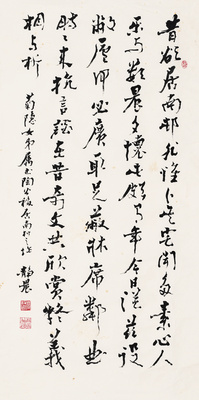 昔欲居南邨非為卜其宅聞多素心人
樂與數晨夕懷此頗有年今日從茲役
敝廬何必廣取足蔽牀席鄰曲
時〻來抗言談在昔奇文共欣賞疑義
相與析
女弟屬書陶公移居南村之作 靜農